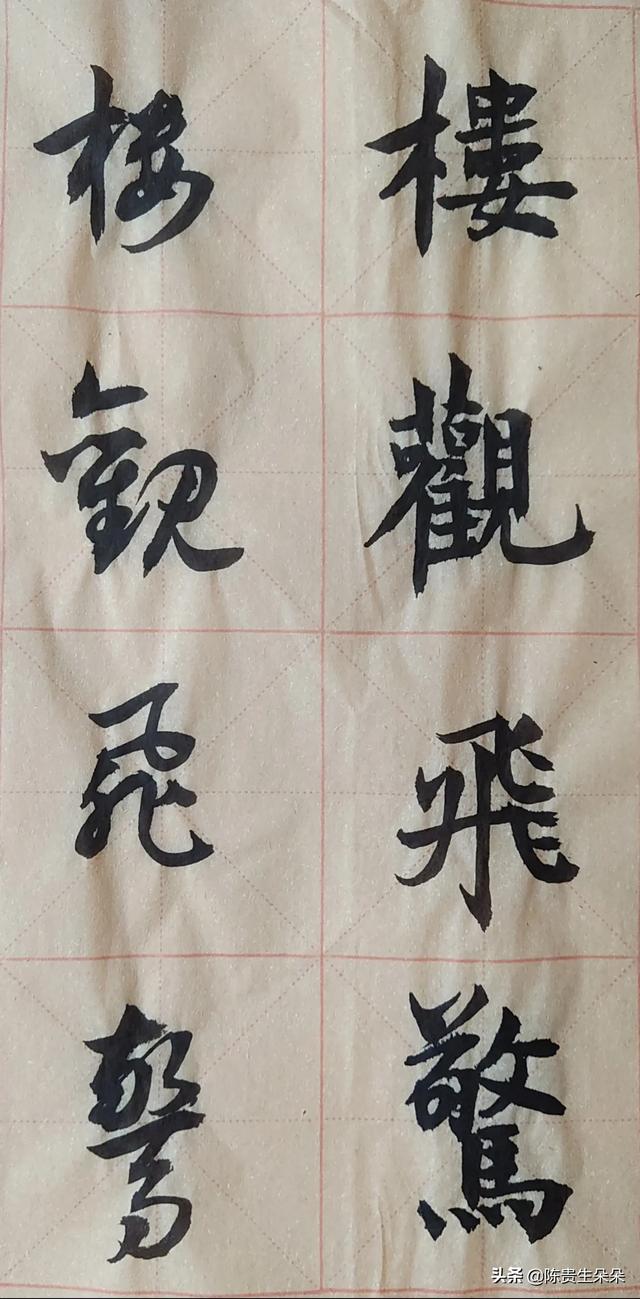 樓觀飛驚
樓觀飛驚
头条 @陈贵生朵朵